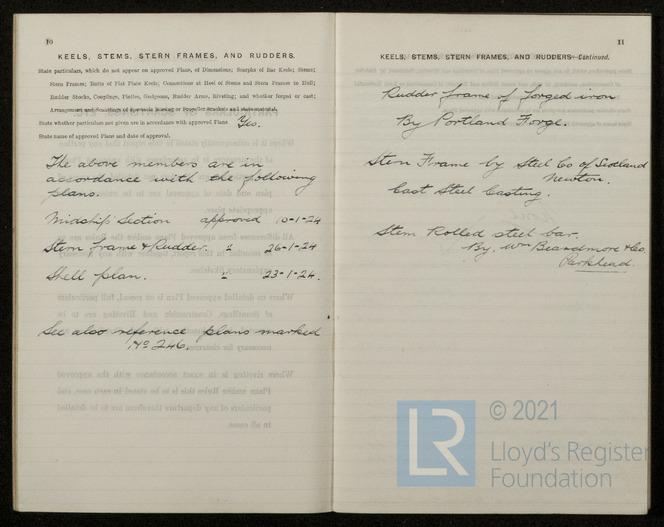 10
KEELS, STEMS, STERN FRAMES, AND RUDDERS.
State particulars, which do not appear on approved Plans, of Dimensions; Scarphs of Bar Keels; Stems;
Stern Frames; Butts of Flat Plate Keels; Connections at Heel of Stems and Stern Frames to Hull;
Rudder Stocks, Couplings, Pintles, Gudgeons, Rudder Arms, Riveting; and whether forged or cast;
Arrangement and Scantlings of Spectacle Bossing or Propeller Brackets and state material.
State whether particulars not given are in accordance with approved Plans Yes.
State name of approved Plans and date of approval.
The above members are in
accordance with the following
plans.
Midship Section approved 10-1-24
Stern Frame & Rudder. " 26-1-24
Shell plan. " 23-1-24.
See also reference plans marked
No 246.
11
KEELS, STEMS, STERN FRAMES, AND RUDDERS—Continued.
Rudder frame of forged iron
By Portland Forge.
Stern Frame by Steel Co of Scotland
Newton.
Cast Steel Casting.
Stem Rolled steel bar.
By. Wm Beardmore & Co.
Parkhead.
LR
© 2021
Lloyd's Register
Foundation